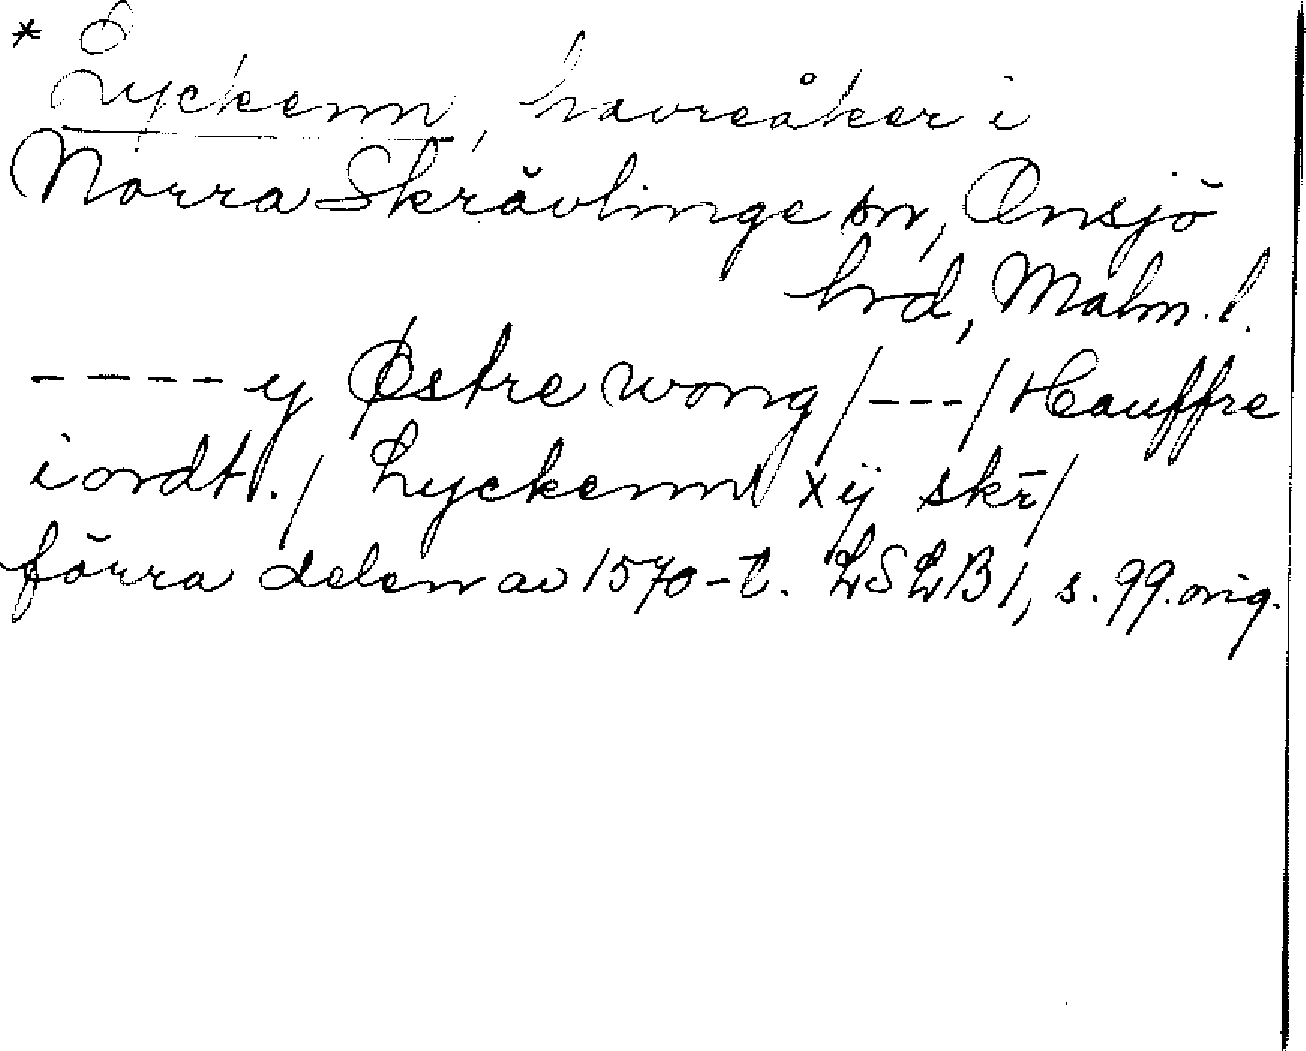 * Lyckenn, havreåker i
Norra Skrävlinge sn, Onsjö
hrd, Malm. l.
- - - - y Østre wong /---/ Hauffre
iordt. / Lyckenn xij skr̄/
förra delen av 1570-t. LSLB1, s. 99. orig.